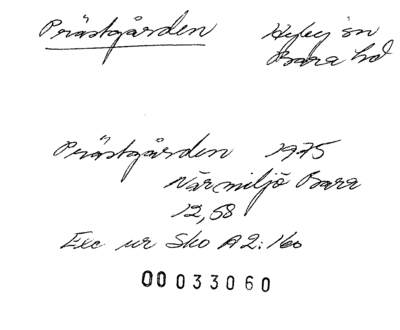 Prästgården Hyby sn
Bara hd
Prästgården 1975
När miljö Bara
12,58
Exc ur Sko A2:160
00033060